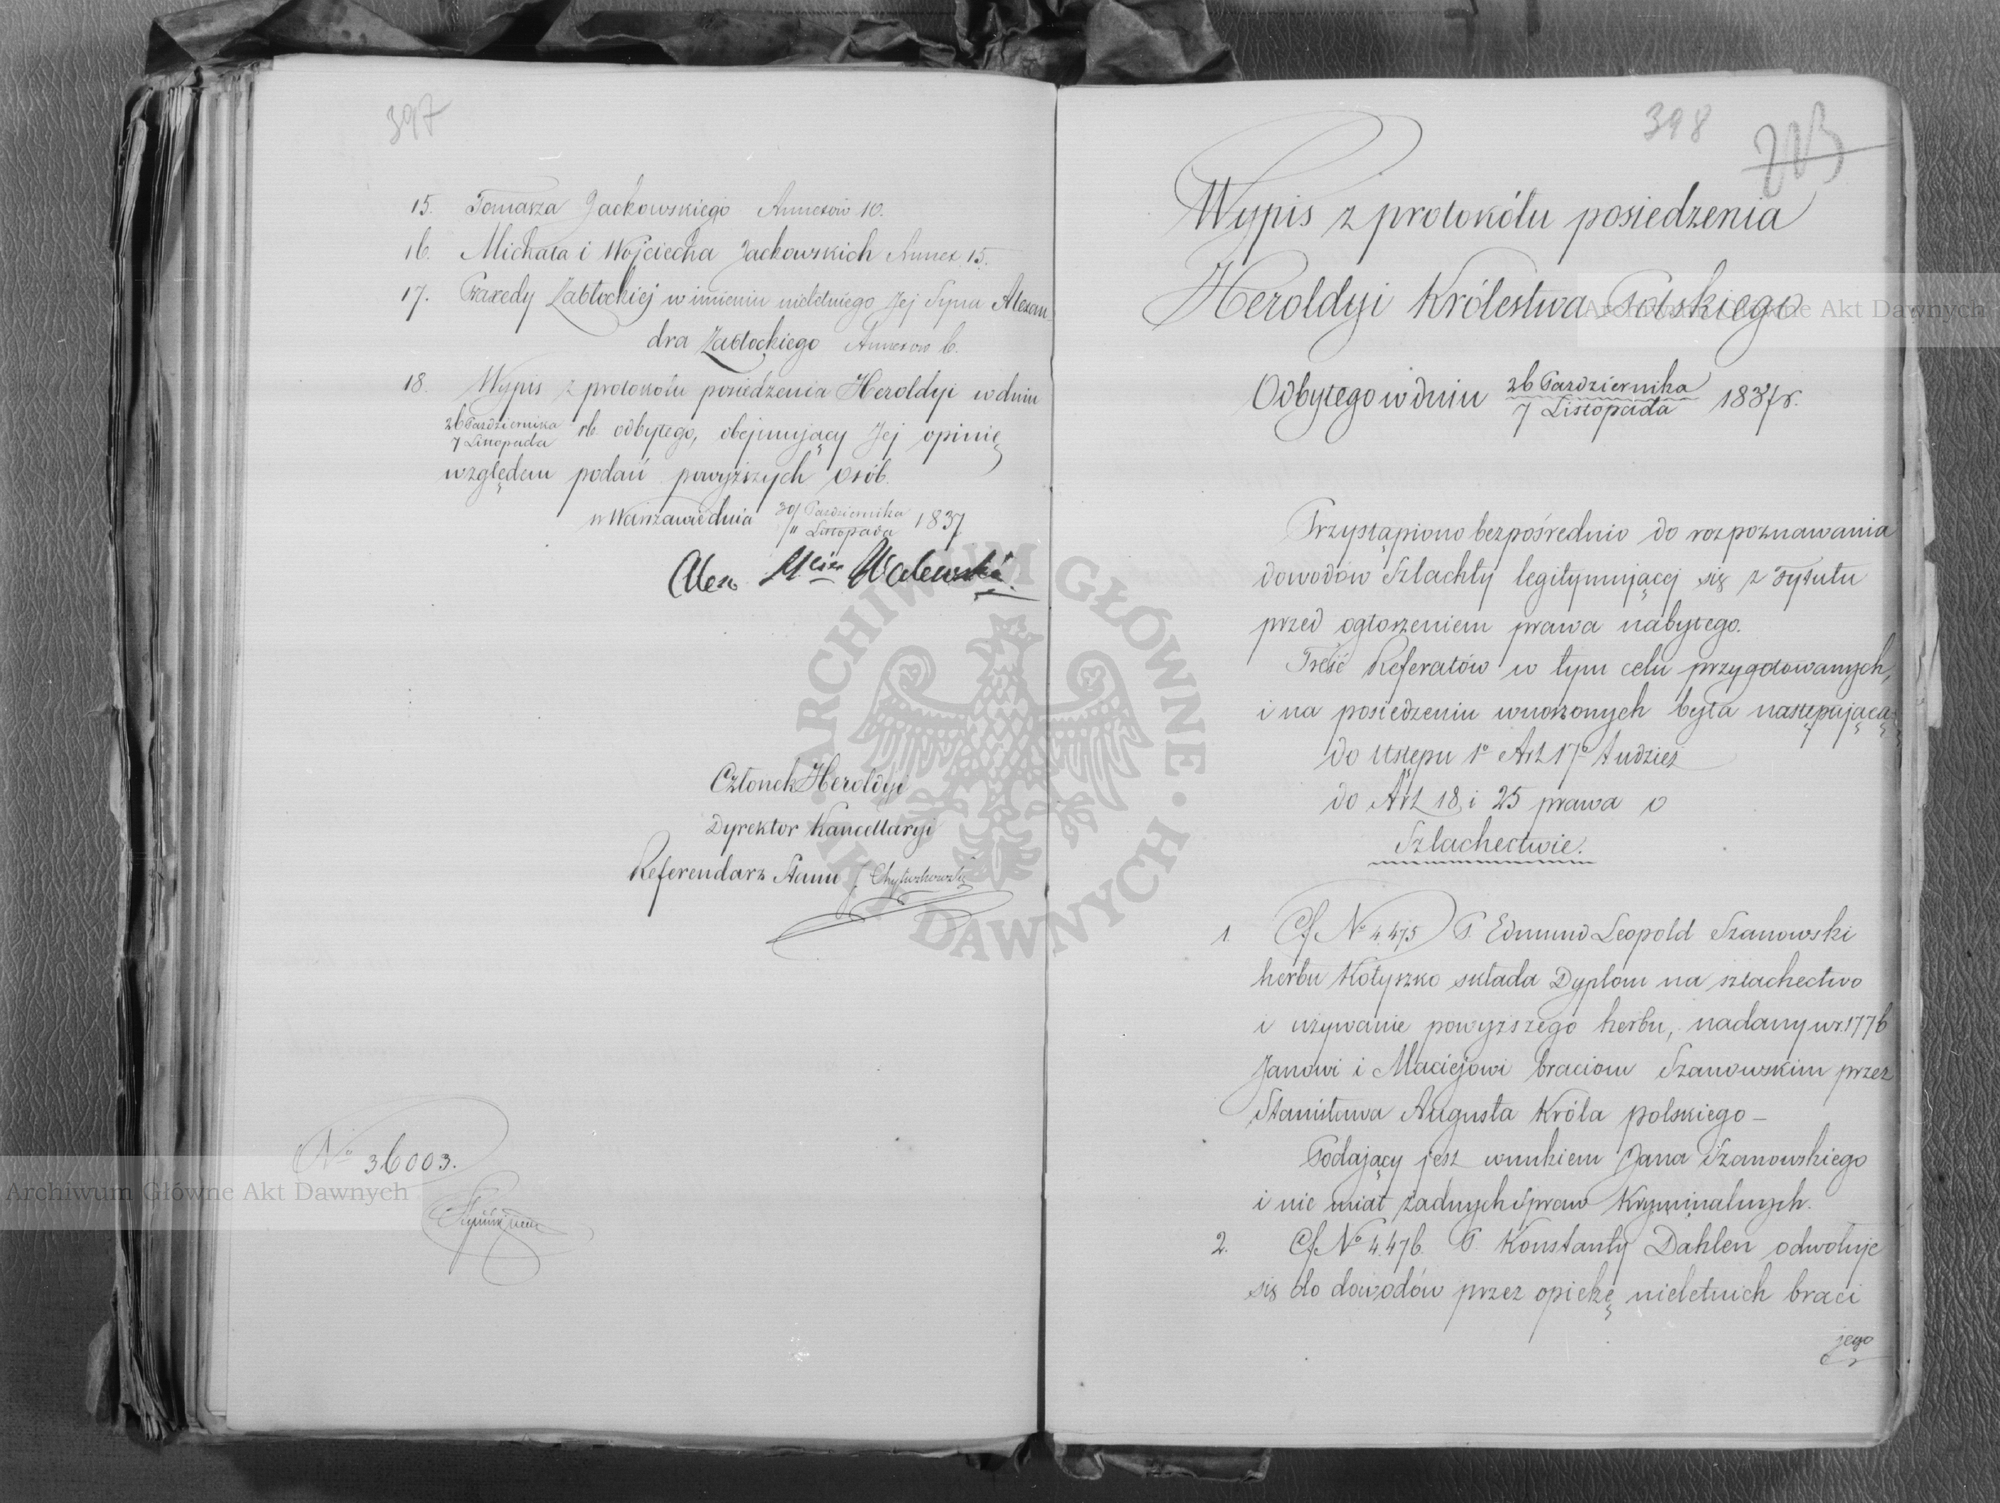 397
15. Tomasza Jackowskiego Annexów 10.
16. Michała i Wojciecha Jackowskich Annex. 15.
17. Praxedy Zabłockiej w imieniu nieletniego Jej Syna Alexan-
dra Zabłockiego Annexów 6.
18. Wypis z protokołu posiedzenia Heroldyi w dniu
26 Października
7 Listopada rb. odbytego, obejmujący Jej opinię
względem podań powyższych osób.
w Warszawie dnia 30/11 Października
Listopada 1837
Alex Walewski.
Członek Heroldyi
Dyrektor Kancellaryi
Referendarz Stanu
No 36003.
398
203
Wypis z protokółu posiedzenia
Heroldyi Królestwa Polskiego
Odbytego w dniu 26 Października
7 Listopada 1837 r.
Przystąpiono bezpośrednio do rozpoznawania
dowodów Szlachty legitymującej się z tytułu
przed ogłoszeniem prawa nabytego.
Treść Referatów w tym celu przygotowanych,
i na posiedzeniu wnoszonych była następująca
do Ustępu 1o Art 17o tudzież
do Art 18 i 25 prawa o
Szlachectwie.
1. Cf No 4.475 P. Edmund Leopold Szanowski
herbu Kotyszko składa Dyplom na szlachectwo
i używanie powyższego herbu, nadany w r. 1776
Janowi i Maciejowi braciom Szanowskim przez
Stanisława Augusta Króla polskiego –
Podający jest wnukiem Jana Szanowskiego
i nie miał żadnych Spraw Kryminalnych.
2. Cf No 4.476. P. Konstanty Dahlen odwołuje
się do dowodów przez opiekę nieletnich braci
jego
Archiwum Główne Akt Dawnych
Archiwum Główne Akt Dawnych
ARCHIWUM GŁÓWNE AKT DAWNYCH